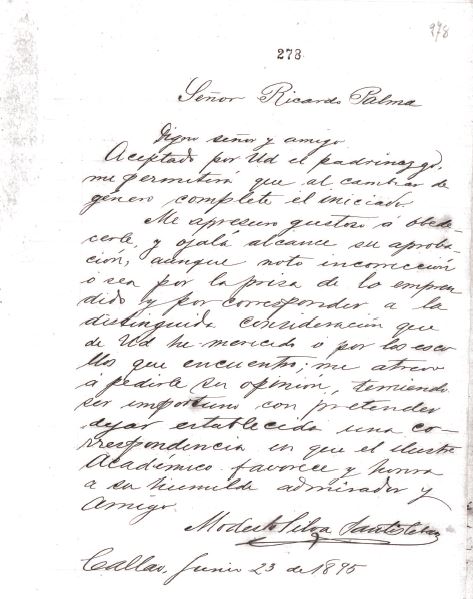 278
273
Señor Ricardo Palma
Digno señor y amigo
Aceptado por Ud el padrinazgo,
me permitirá que al cambiar de
género complete el iniciado.
Me apresuro gustoso á obede-
cerle, y ojalá alcance su aproba-
ción, aunque noto incorrección
ó sea por la prisa de lo empren
dido y por corresponder a la
distinguida consideración que
de Ud he merecido ó por los esco
llos que encuentro; me atrevo
á pedirle su opinión, temiendo
ser importuno con pretender
dejar establecida una co-
rrespondencia en que el ilustre
Académico favorece y honra
a su humilde admirador y
Amigo
Modesto Silva Santisteban
Callao, Junio 23 de 1895